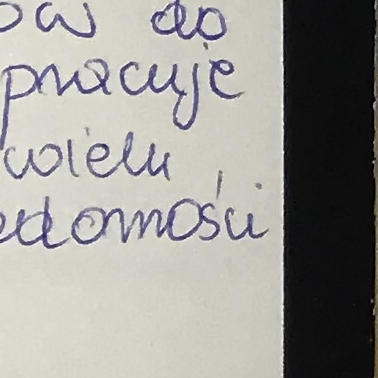 ów do
pracuje
wielu
edomości